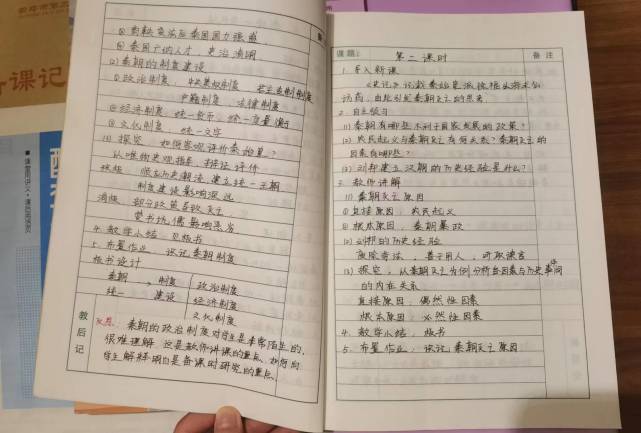 备课记
①商鞅变法后秦国国力强盛
②秦国广纳人才，吏治清明
(2)秦朝的制度建设
①政治制度，中央集权制度
郡县制度 法律制度
②经济制度，统一货币，统一度量衡
③文化制度，统一文字
(3)探究，如何客观评价秦始皇？
从唯物史观指导，辩证评价
积极 顺应历史潮流，建立统一王朝
制度建设影响深远
消极 部分政策导致灭亡
焚书坑儒影响恶劣
4.教学小结 见板书
5.布置作业 识记秦朝制度
板书设计
秦朝 制度 政治制度
统一 建设 经济制度
文化制度
教后记
反思：秦朝的政治制度对学生是非常陌生的，
很难理解，这是教师讲课的重点，如何向
学生解释明白是备课时研究的重点
课题： 第二课时 备注
1.导入新课
《史记》记载秦始皇派徐福出海求仙
访药，由此引起秦朝灭亡的思考
2.自主预习
(1)秦朝有哪些不利于国家发展的政策？
(2)农民起义与秦朝灭亡有何关系？秦朝灭亡的
因素有哪些？
(3)刘邦建立汉朝的历史经验是什么？
3.教师讲解
(1)秦朝灭亡原因
①直接原因，农民起义
②根本原因，秦朝暴政
(2)刘邦的历史经验
废除苛法，善于用人，听取谏言
(3)探究，从秦朝灭亡为例分析各因素与历史事件间
的内在关系
直接原因 偶然性因素
根本原因 必然性因素
4.教学小结，板书
5.布置作业，识记秦朝灭亡原因